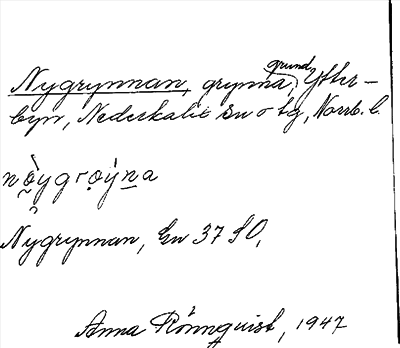 Nygrynnan, grynna, grund, Ytter-
byn, Nederkalix sn o tg, Norrb. l.
nòygrøýna
Nygrynnan, Gw 37 SO,
Anna Rönnquist, 1947